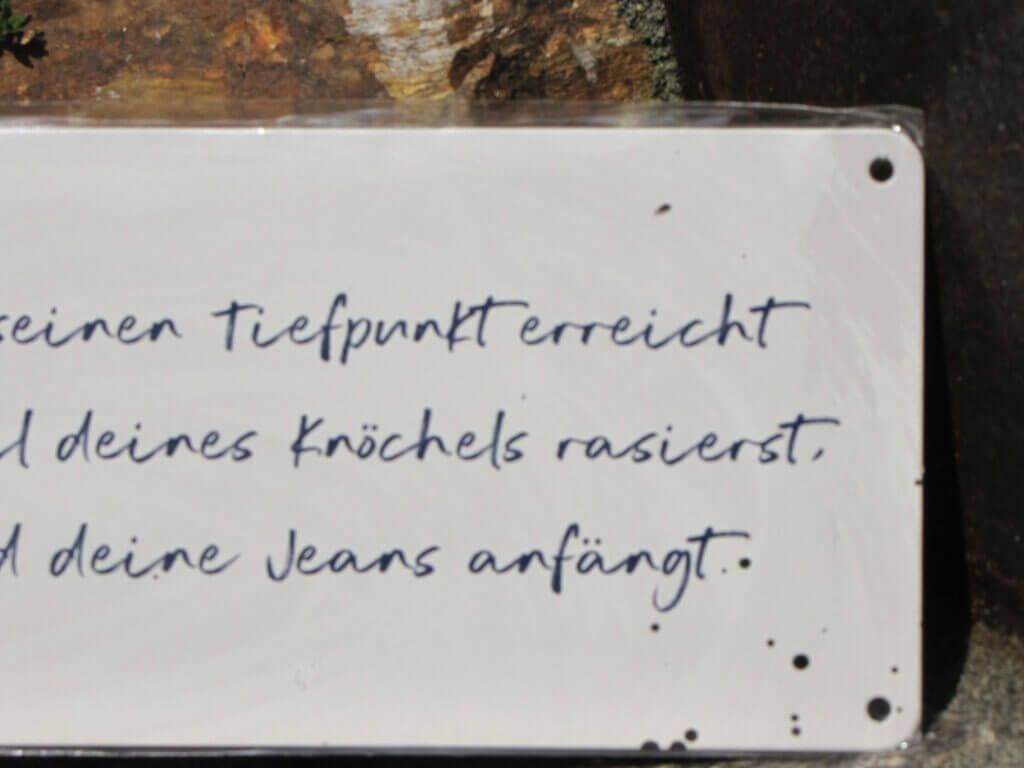 seinen Tiefpunkt erreicht
deines Knöchels rasierst,
deine Jeans anfängt.